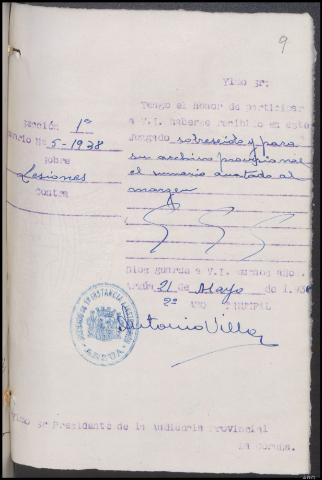 9
Ylmo Sr:
Tengo el honor de participar
a V.I. haberse recibido en este
Juzgado sobreseido y para
su archivo provisional
el sumario anotado al
margen
Sección 1ª
Sumario Nº 5-1938
sobre
Lesiones
Contra
Dios guarde a V.I. muchos años.
Arzúa 21 de Mayo de 1.938
2º AÑO TRIUNFAL
Antonio Villar
JUZGADO DE 1ª INSTANCIA E INSTRUCCION
ARZUA
Ylmo Sr Presidente de la Audiencia Provincial
La Coruña.